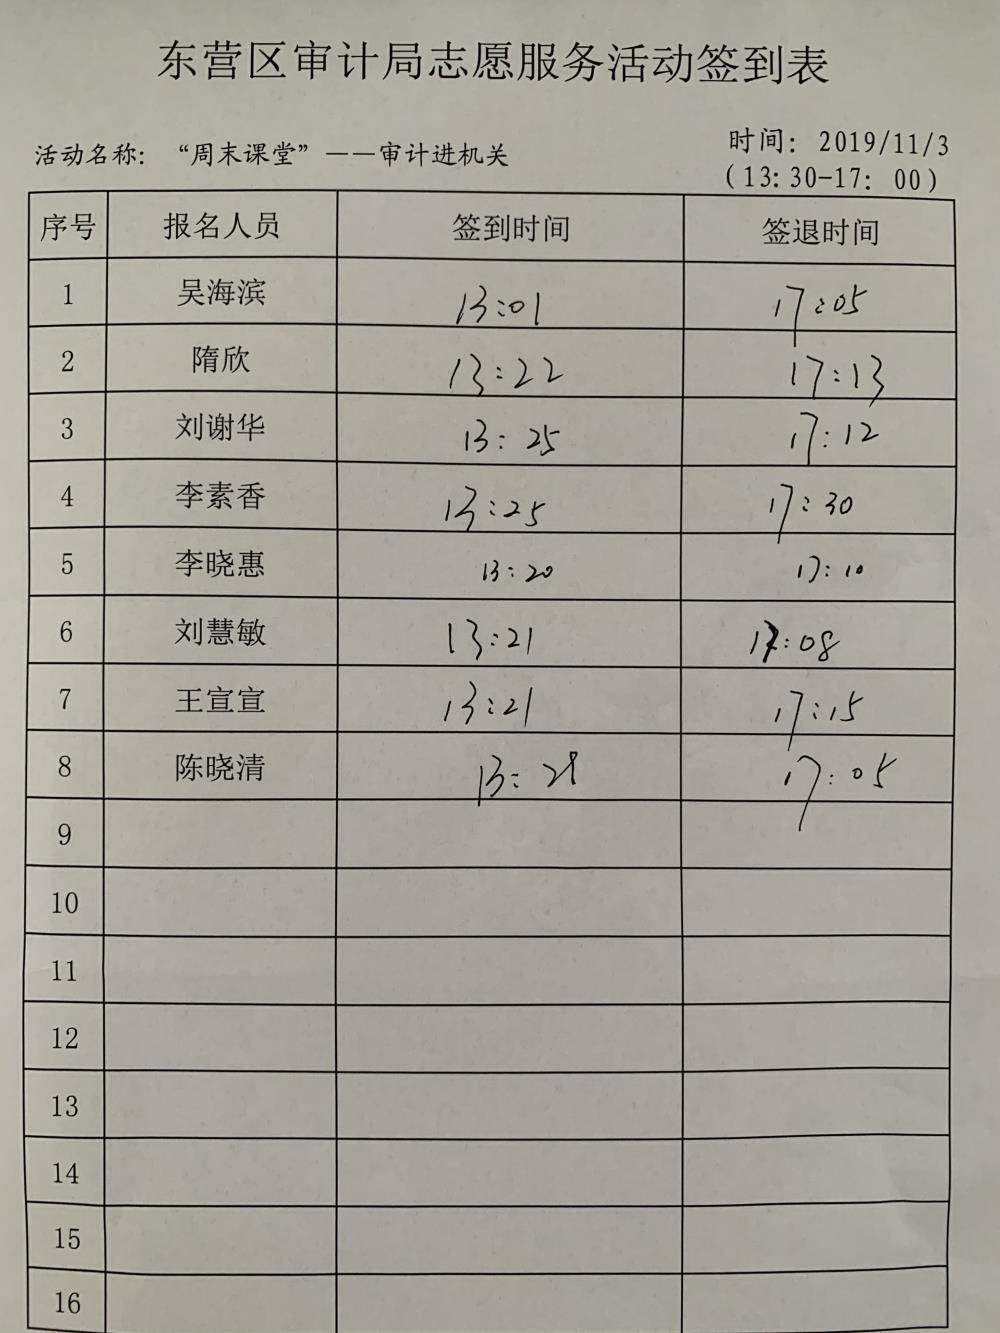 东营区审计局志愿服务活动签到表
活动名称：“周末课堂”——审计进机关
时间：2019/11/3
（13：30-17：00）
序号 报名人员 签到时间 签退时间
1 吴海滨 13:01 17:05
2 隋欣 13:22 17:13
3 刘谢华 13:25 17:12
4 李素香 13:25 17:30
5 李晓惠 13:20 17:10
6 刘慧敏 13:21 17:08
7 王宣宣 13:21 17:15
8 陈晓清 13:28 17:05
9
10
11
12
13
14
15
16